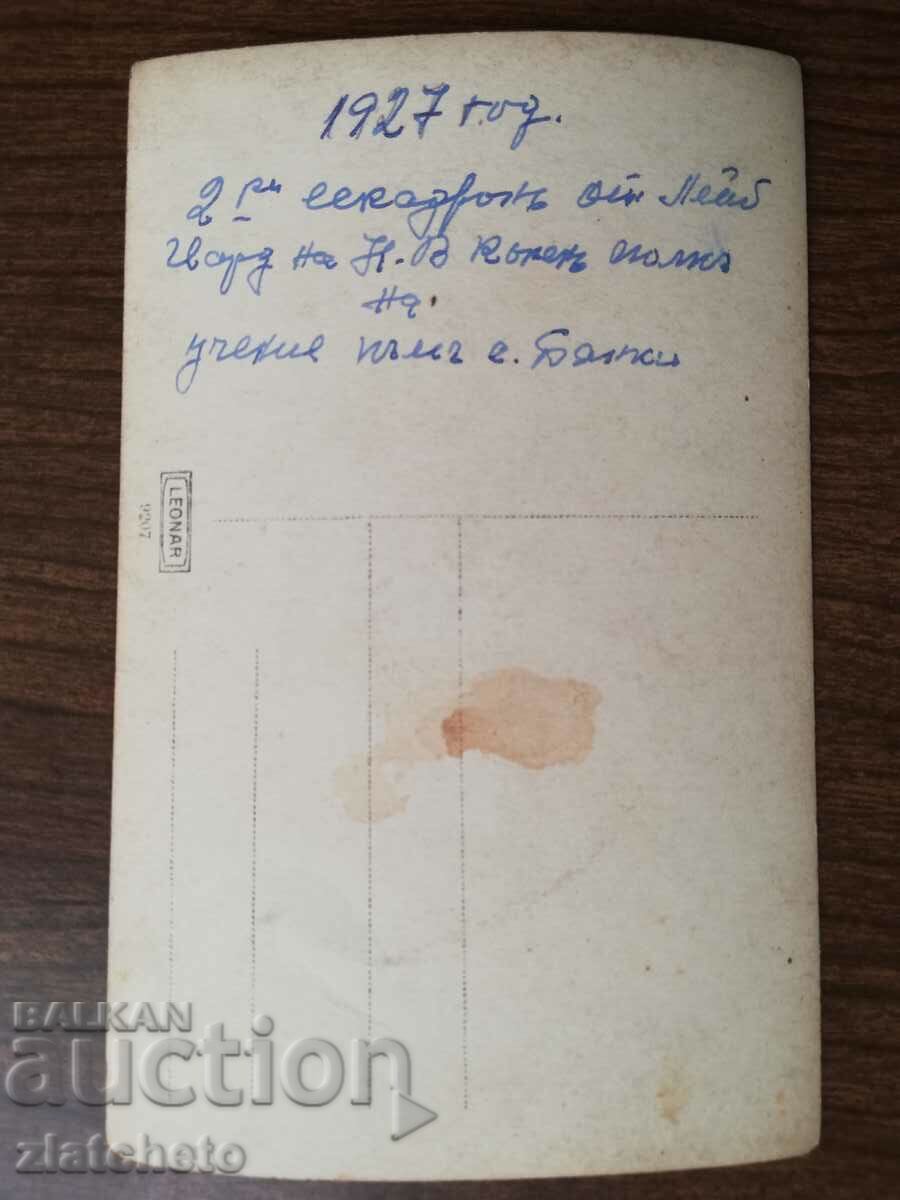 1927 год.
2 ри ескадронъ от Лейб
Гвард на Н.В Конен полкъ
на
учение къмъ с. Банки
LEONAR
9207
BALKAN
auction
zlatcheto